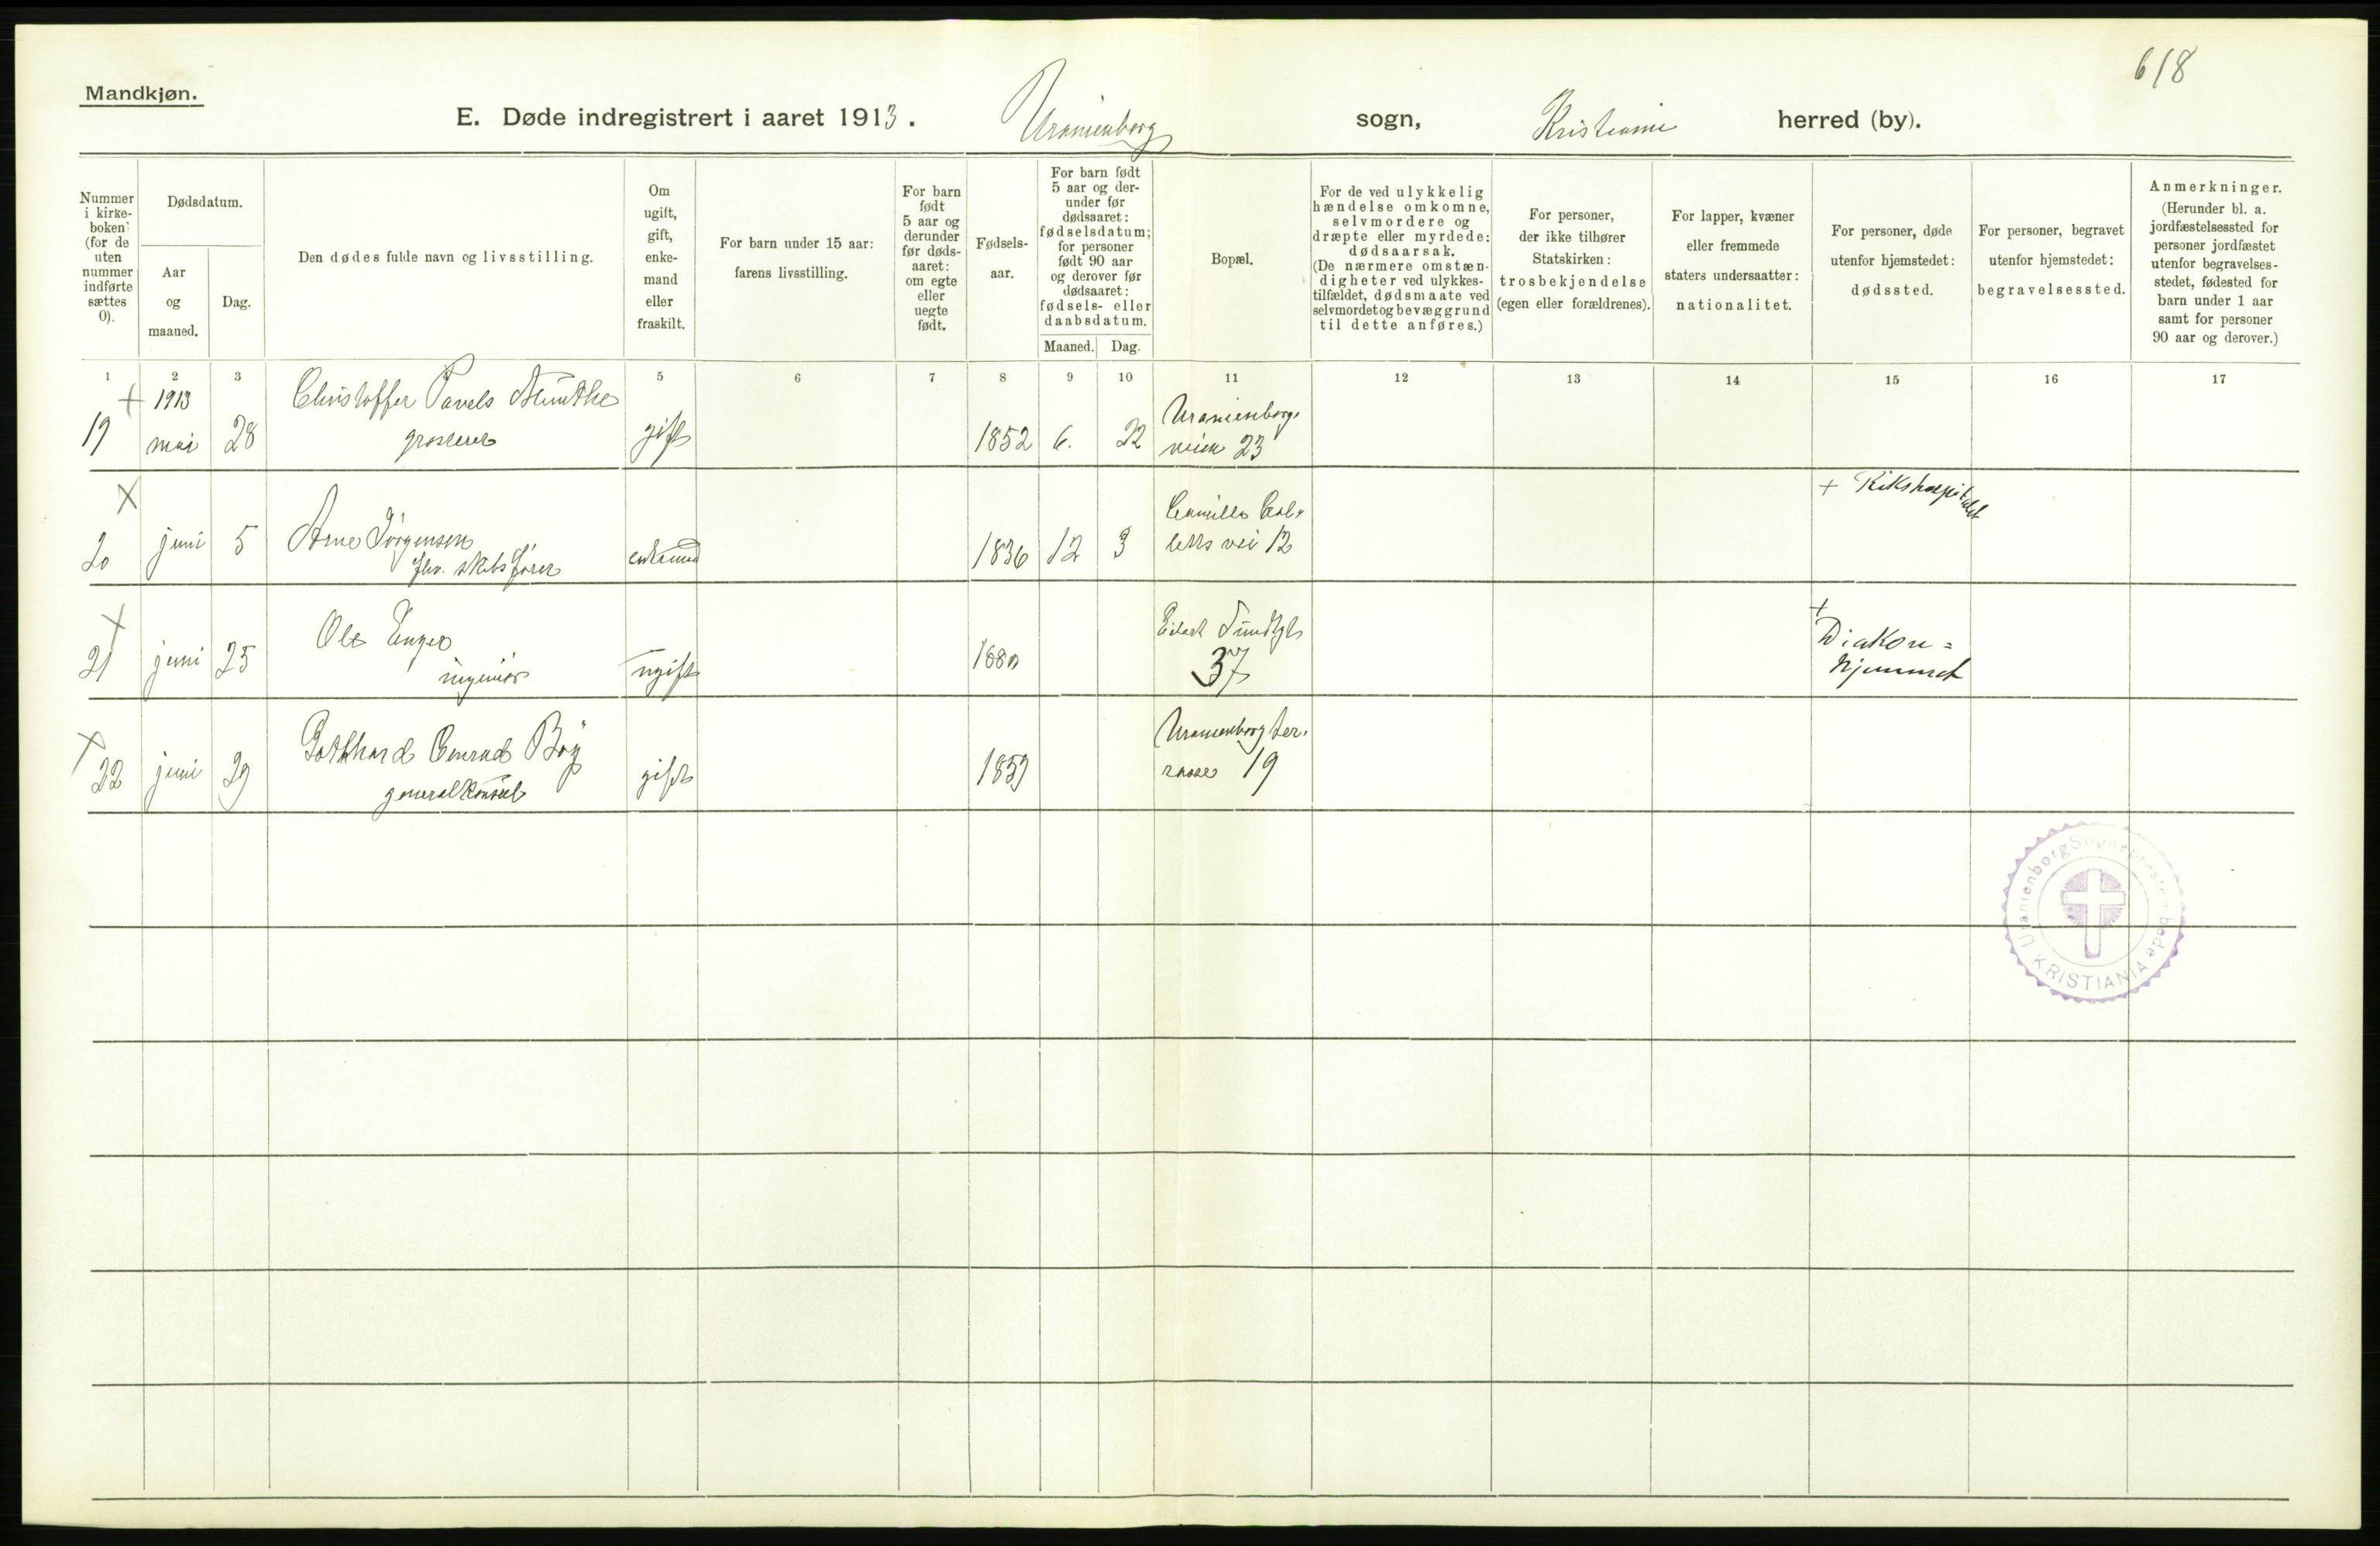 618
Mandkjøn.
E. Døde indregistrert i aaret 1913. Uranienborg sogn, Kristiania herred (by).
Nummer
i kirke-
boken
(for de
uten
nummer
indførte
sættes
0).
Dødsdatum.
Aar
og
maaned.
Dag.
Den dødes fulde navn og livsstilling.
Om
ugift,
gift,
enke-
mand
eller
fraskilt.
For barn under 15 aar:
farens livsstilling.
For barn
født
5 aar og
derunder
før døds-
aaret:
om egte
eller
uegte
født.
Fødsels-
aar.
For barn født
5 aar og der-
under før
dødsaaret:
fødselsdatum;
for personer
født 90 aar
og derover før
dødsaaret:
fødsels- eller
daabsdatum.
Maaned. Dag.
Bopæl.
For de ved ulykkelig
hændelse omkomne,
selvmordere og
dræpte eller myrdede:
dødsaarsak.
(De nærmere omstæn-
digheter ved ulykkes-
tilfældet, dødsmaate ved
selvmordet og bevæggrund
til dette anføres.)
For personer,
der ikke tilhører
Statskirken:
trosbekjendelse
(egen eller forældrenes).
For lapper, kvæner
eller fremmede
staters undersaatter:
nationalitet.
For personer, døde
utenfor hjemstedet:
dødssted.
For personer, begravet
utenfor hjemstedet:
begravelsessted.
Anmerkninger.
(Herunder bl. a.
jordfæstelsessted for
personer jordfæstet
utenfor begravelses-
stedet, fødested for
barn under 1 aar
samt for personer
90 aar og derover.)
1 2 3 4 5 6 7 8 9 10 11 12 13 14 15 16 17
+ 1913 Christoffer Pavels Munthe Uranienborg-
19 mai 28 grosserer gift 1852 6. 22 veien 23
X + Rikshospitalet
20 juni 5 Arne Jörgensen enkemand 1836 12 3 Camilla Col-
fhv. skibsfører letts vei 12
X Ole Enger Eilert Sundtgt +
21 juni 25 ingeniör ugift 1880 37 Diakon=
hjemmet
X Gotthard Conrad Böÿ Uranienborg ter-
22 juni 29 generalkonsul gift 1859 rasse 19
Uranienborg Sogneprestembede
KRISTIANIA